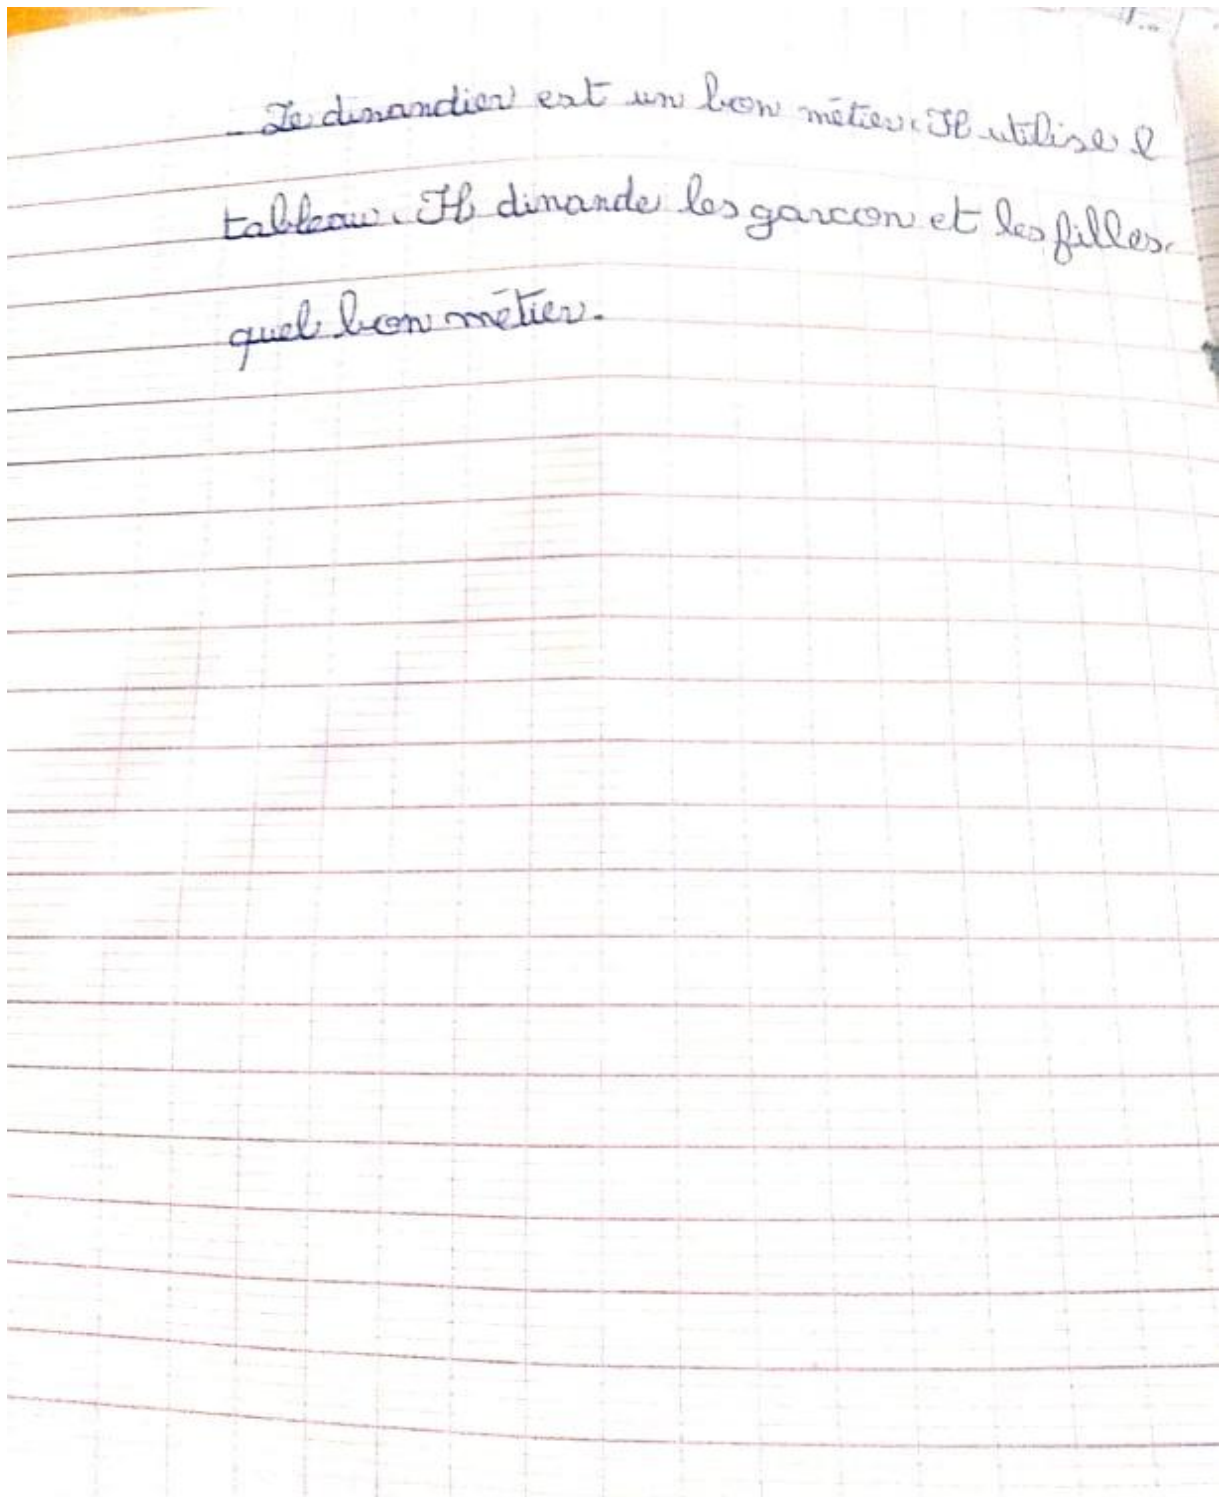 _ Le dinandier est un bon métier. Il utilise l
tableau. Il dinande les garcon et les filles.
quel bon métier.